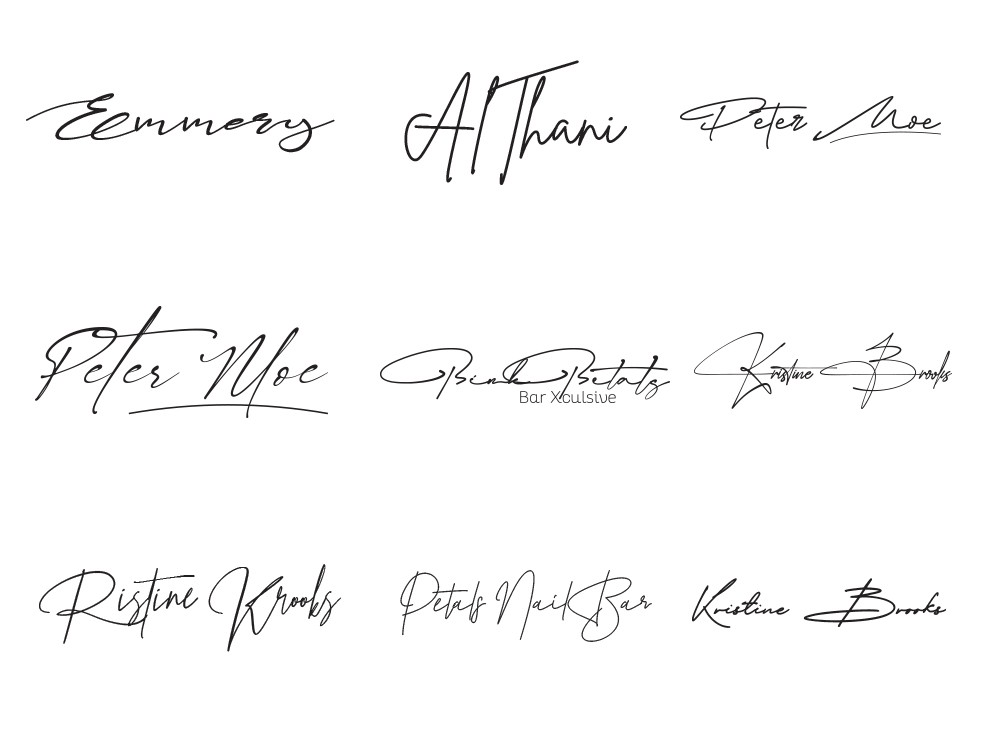 Eemmery
Al Thani
Peter Moe
Peter Moe
Bink Betats
Bar Xculsive
Kristine Brooks
Ristine Krooks
Petals Nail Bar
Kristine Brooks